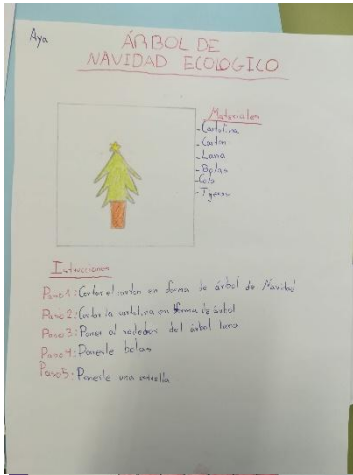 Aya
ÁRBOL DE
NAVIDAD ECOLOGICO
Materiales
-Cartolina
-Carton
-Lana
-Bolas
-Celo
-Tijeras
Instrucciones
Paso 1: Cortar el carton en forma de árbol de Navidad
Paso 2: Cortar la cartolina en forma de árbol
Paso 3: Poner al rededor del árbol lana
Paso 4: Ponerle bolas
Paso 5: Ponerle una estrella